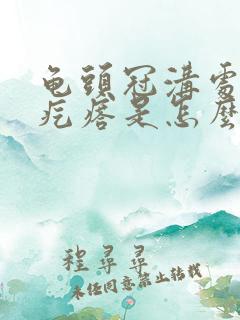 龟頭冠溝處
疙瘩是怎麽
程尋尋
未任同意禁止转载